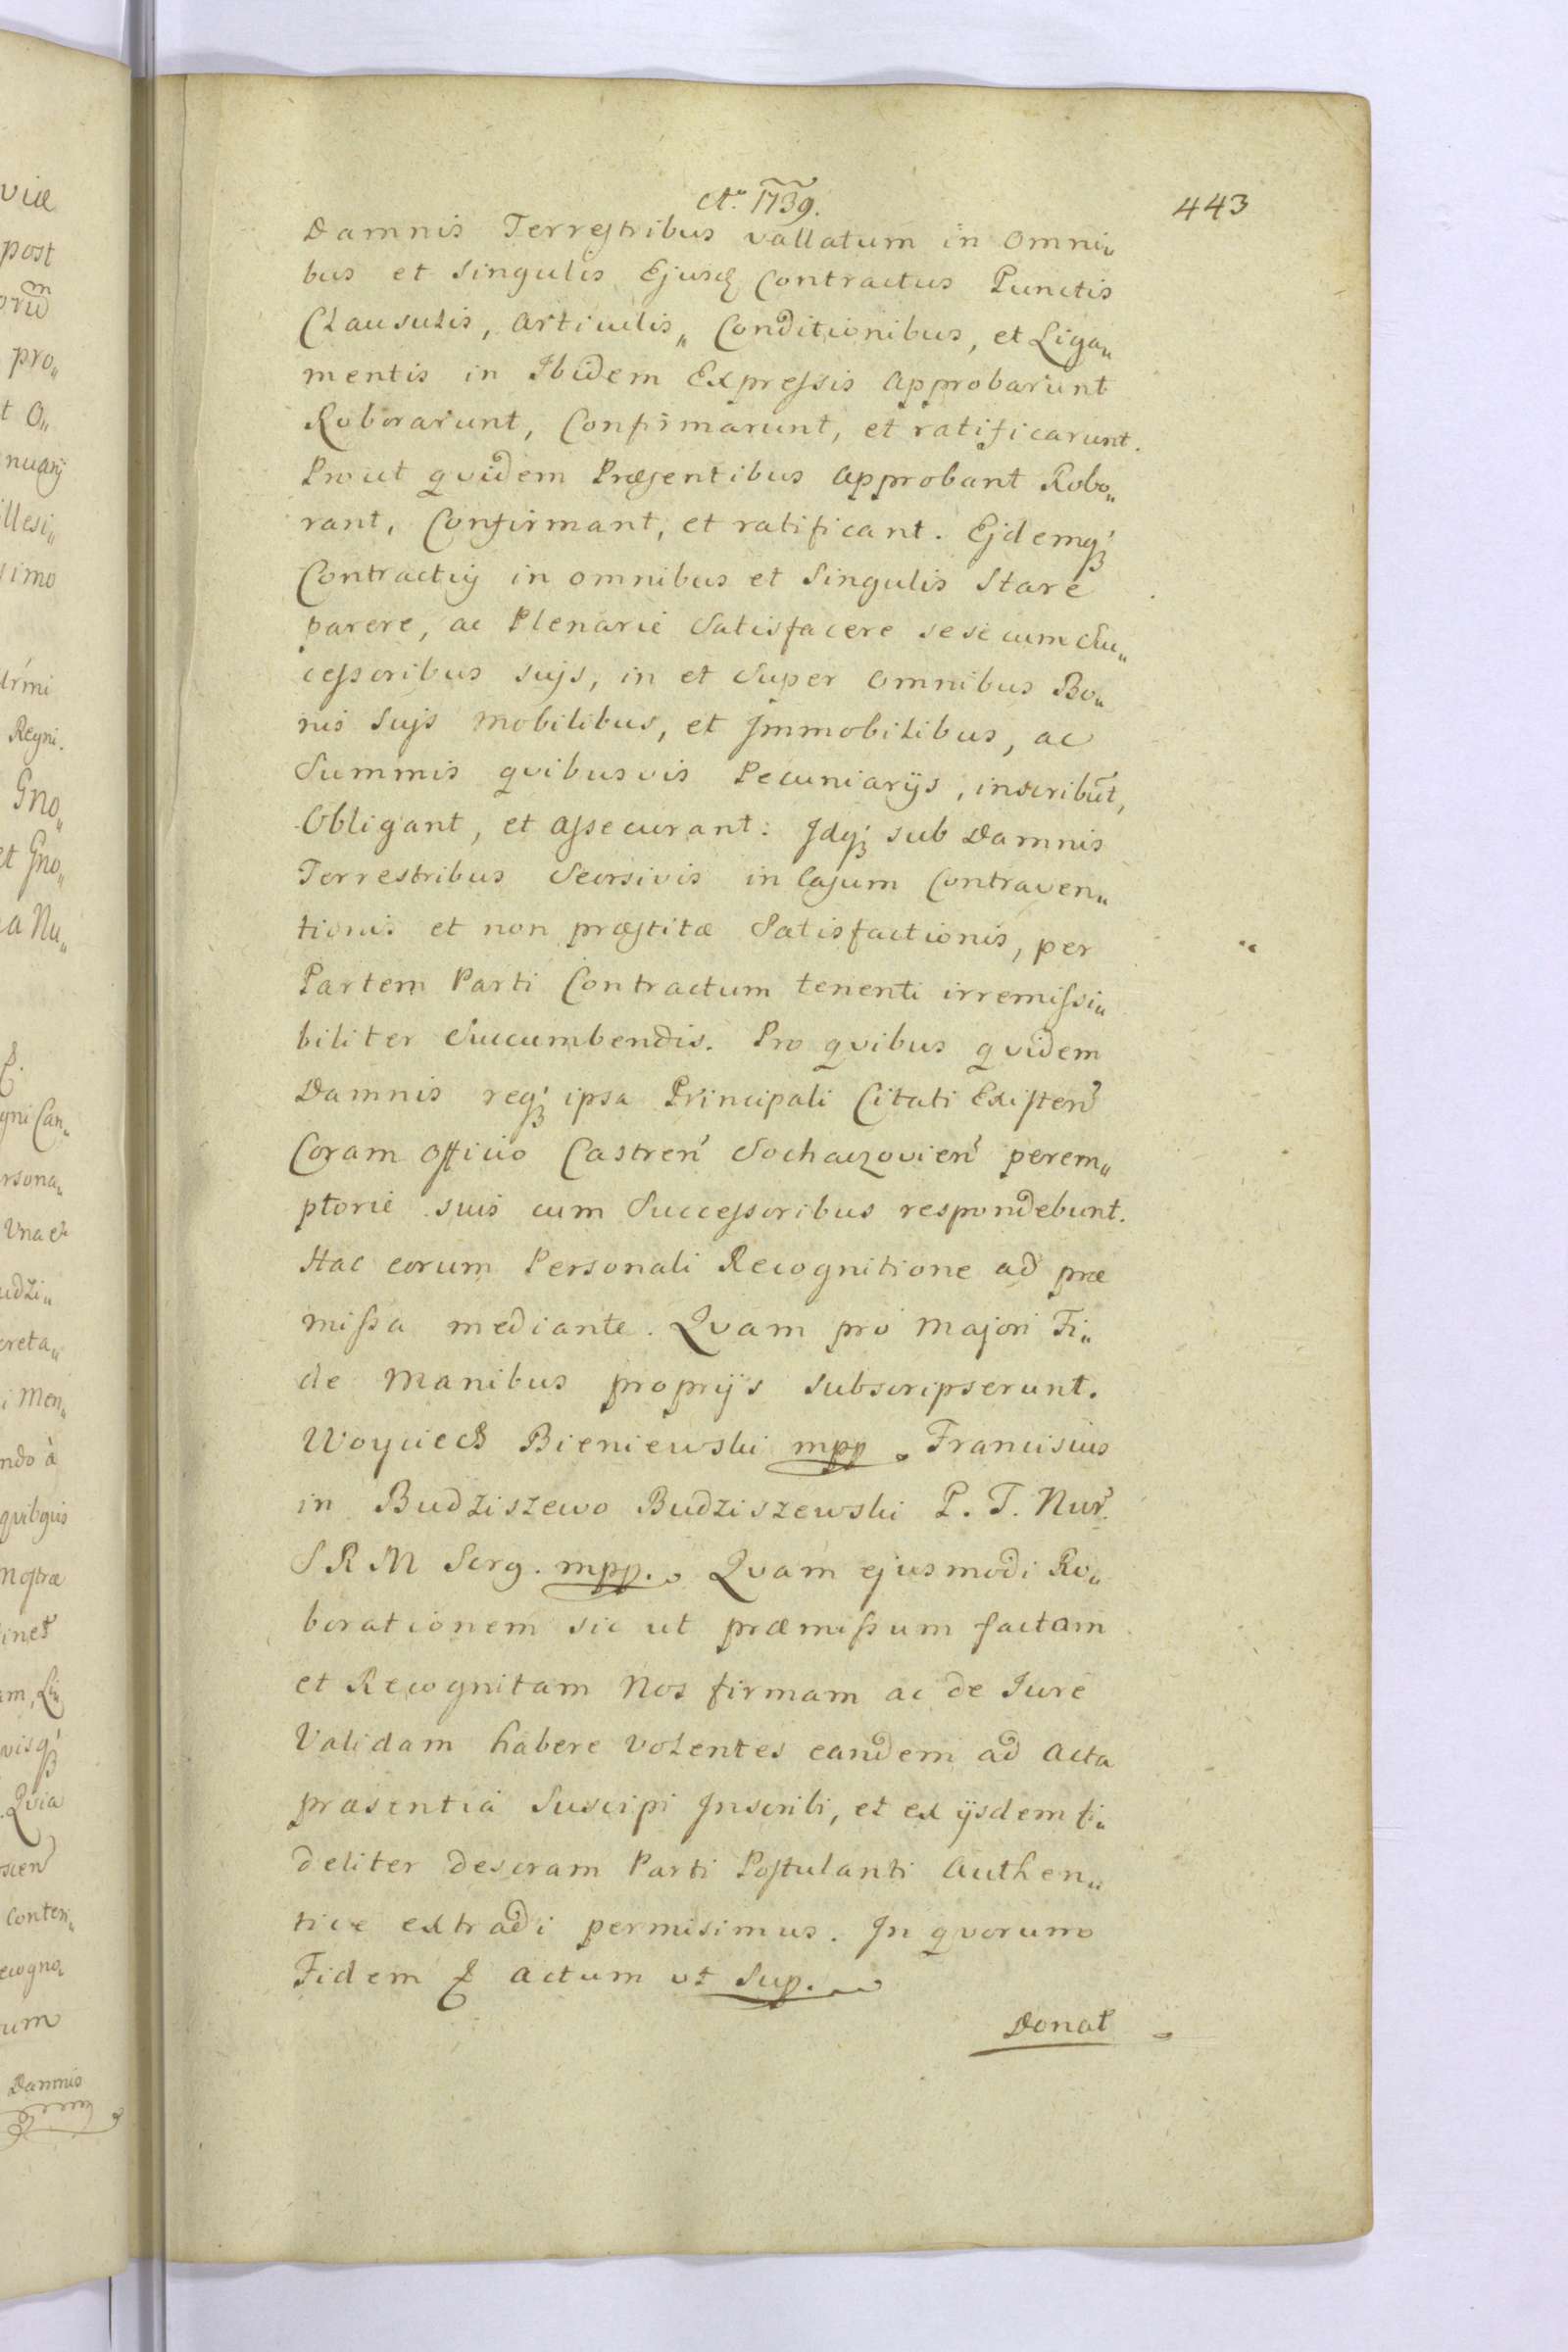 Aº 1739.
443
Damnis Terrestribus vallatum in omni„
bus et Singulis Ejusd Contractus Punctis
Clausulis, Articulis„ Conditionibus, et Liga„
mentis in Ibidem Expressis Approbarunt
Roborarunt, Confirmarunt, et ratificarunt.
Prout quidem Præsentibus Approbant Robo„
rant, Confirmant, et ratificant. Ejdemq;
Contractuj in omnibus et Singulis Stare
parere, ac Plenarie Satisfacere sese cum Suc„
cessoribus sujs, in et Super omnibus Bo„
nis Sujs Mobilibus, et Jmmobilibus, ac
Summis quibusvis Pecuniarijs, inscribut,
Obligant, et Assecurant: Jdq; sub Damnis
Terrestribus Seorsivis in Casum Contraven„
tionis et non præstitæ Satisfactionis, per
Partem Parti Contractum tenenti irremissi„
biliter Succumbendis. Pro quibus quidem
Damnis req; ipsa Principali Citati Existen
Coram Officio Castren Sochaczovien perem„
ptorie suis cum Successoribus respondebunt.
Hac eorum Personali Recognitione ad præ
missa mediante. Quam pro Majori Fi„
de Manibus proprijs subscripserunt.
Woyciech Bieniewski mpp. Franciscus
in Budziszewo Budziszewski P. T. Nur.
S R M Serg. mpp. Quam ejusmodi Ro„
borationem sic ut præmissum factam
et Recognitam Nos firmam ac de Jure
Validam habere volentes eandem ad Acta
præsentia Suscipi Jnscribi, et ex ijsdem fi„
deliter descram Parti Postulanti Authen„
tice extradi permisimus. Jn quorum
Fidem & Actum ut Sup.
Donat
viæ
post
pro„
t O„
nuarij
illesi„
simo
Regni.
Gno„
et Gno„
a Nu„
gni Can„
rsona„
Una et
udzi„
creta„
i Men„
ndo à
quibus
nostræ
visq;
Quia
conten„
ecogno„
um
Damnis